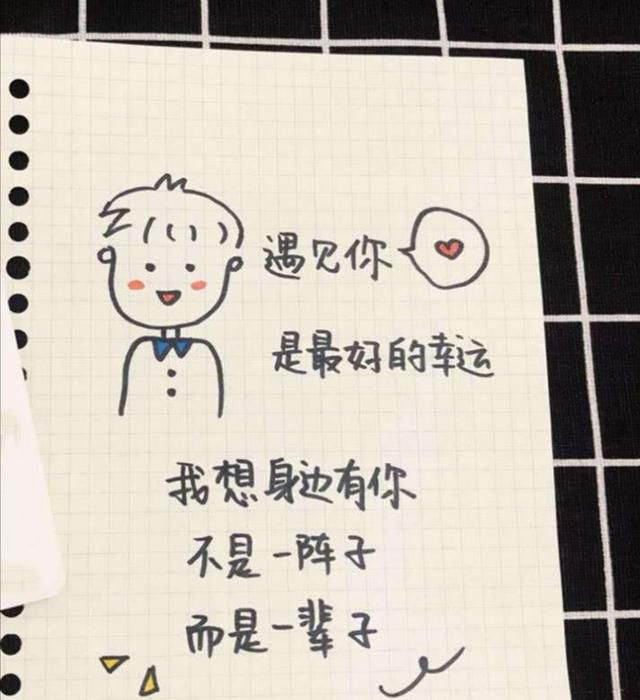 遇见你
是最好的幸运
我想身边有你
不是一阵子
而是一辈子